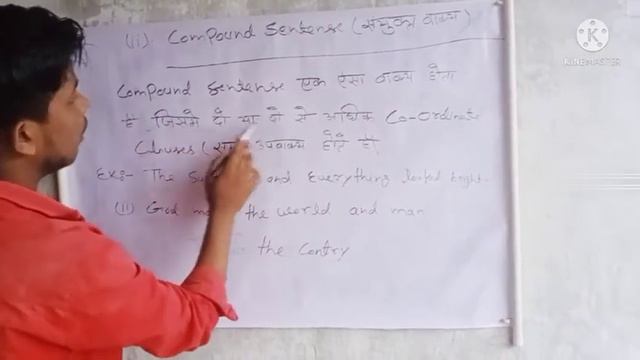 (ii). Compound Sentense (संयुक्त वाक्य)
Compound Sentense एक ऐसा वाक्य होता
है जिसमे दो या दो से अधिक Co-Ordinate
Clauses ( उपवाक्य होते है।
Ex:- The and Everything looked bright.
(ii) God the world and man
the Contry
KINEMASTER